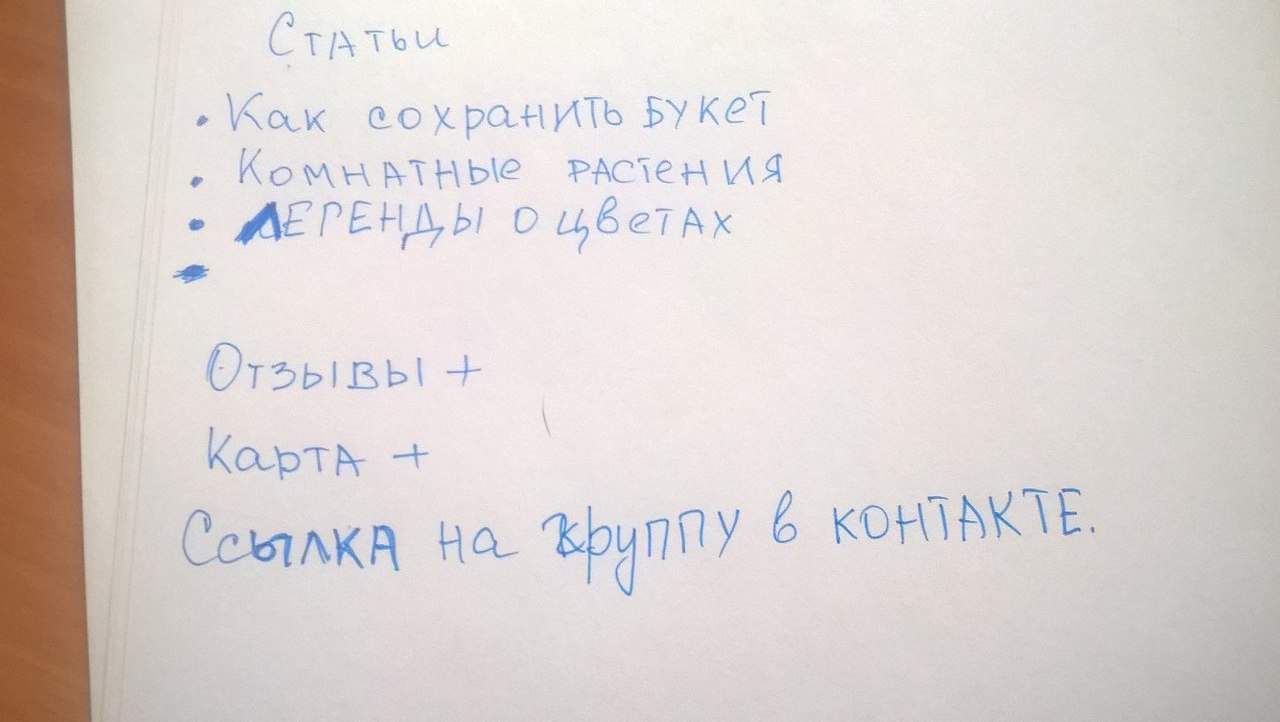 Статьи
• Как сохранить букет
• Комнатные растения
• Легенды о цветах
•
Отзывы +
Карта +
Ссылка на группу в контакте.